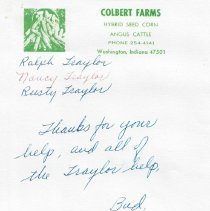 COLBERT FARMS
HYBRID SEED CORN
ANGUS CATTLE
PHONE 254-4141
Washington, Indiana 47501
Ralph Traylor
Nancy Traylor
Rusty Traylor
Thanks for your
help, and all of
the Traylor help,
Bud.